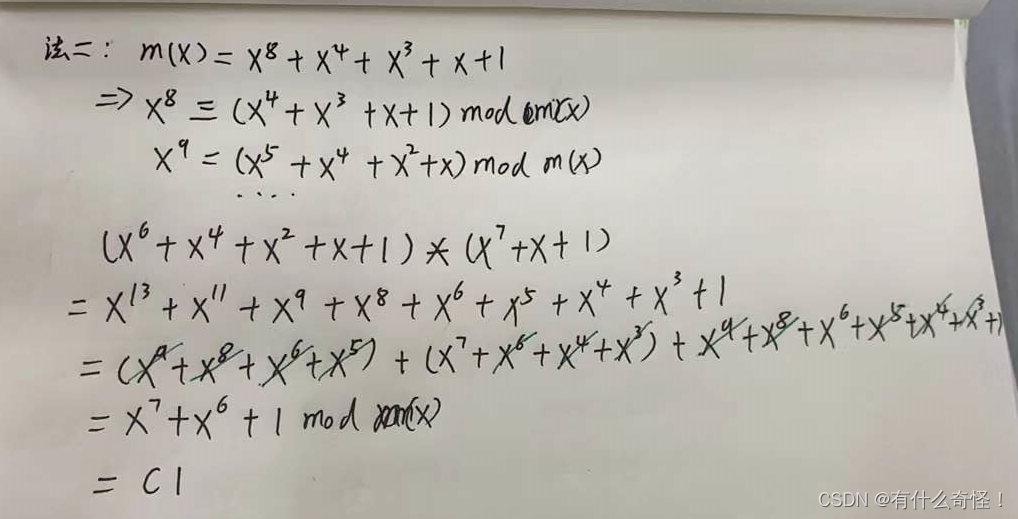 法二： m(x) = x⁸ + x⁴ + x³ + x + 1
=> x⁸ ≡ (x⁴ + x³ + x + 1) mod m(x)
x⁹ = (x⁵ + x⁴ + x² + x) mod m(x)
....
(x⁶ + x⁴ + x² + x + 1) * (x⁷ + x + 1)
= x¹³ + x¹¹ + x⁹ + x⁸ + x⁶ + x⁵ + x⁴ + x³ + 1
= (x⁹ + x⁸ + x⁶ + x⁵) + (x⁷ + x⁶ + x⁴ + x³) + x⁹ + x⁸ + x⁶ + x⁵ + x⁴ + x³ + 1
= x⁷ + x⁶ + 1 mod m(x)
= C1
CSDN @有什么奇怪！